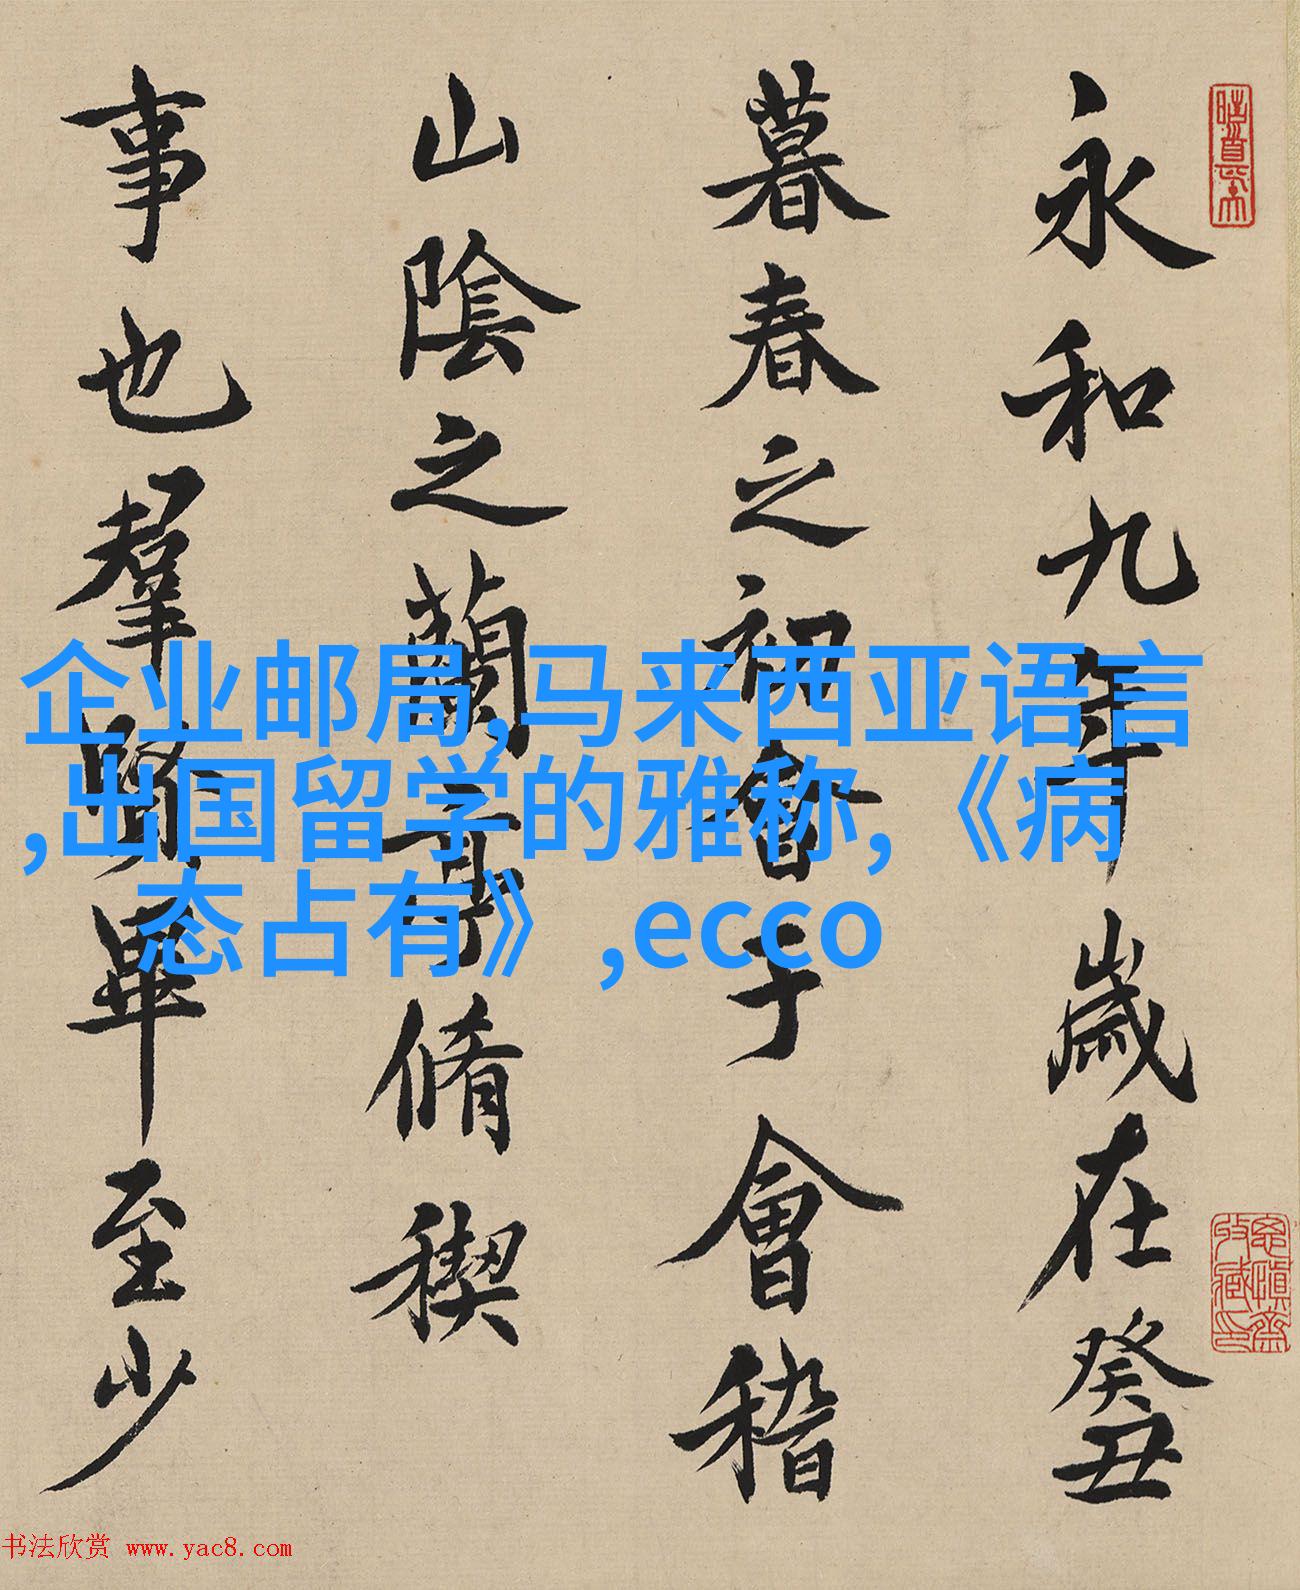 永和九年歲在癸丑
暮春之初會于會稽
山陰之蘭亭脩稧
事也羣賢畢至少
企业邮局,马来西亚语言
,出国留学的雅称,《病
态占有》,ecco
书法欣赏 www.yac8.com